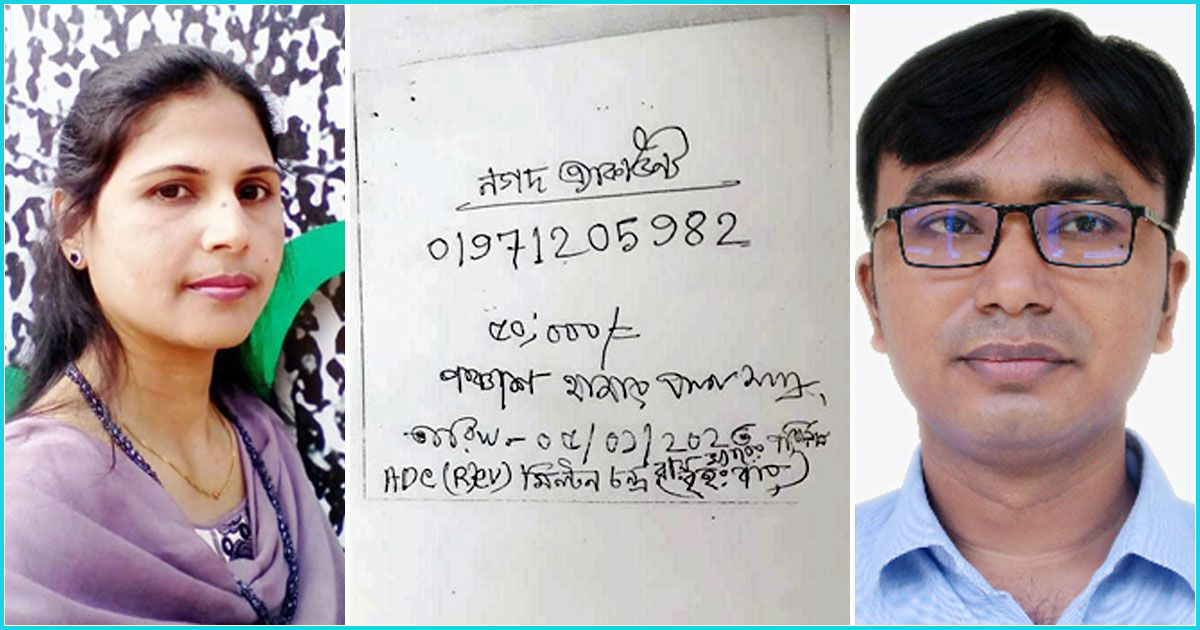 নগদ একাউন্ট
01971205982
৫০,০০০/-
পঞ্চাশ হাজার টাকা মাত্র,
তারিখ- ০৫/০১/202৩
ADC (Rev) মিল্টন চন্দ্র রায় (বৃহঃ বার)